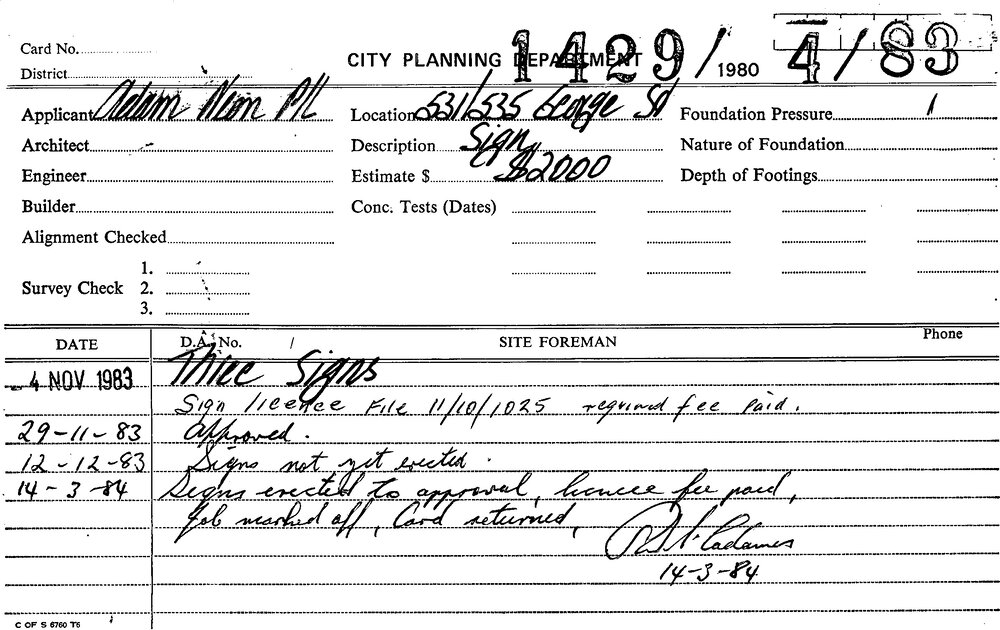 Card No.
CITY PLANNING DEPARTMENT 1429/1980 4/83
District
Applicant Adam Neon P/L Location 531/535 George St Foundation Pressure
Architect Description Sign Nature of Foundation
Engineer Estimate $ $2000 Depth of Footings
Builder Conc. Tests (Dates)
Alignment Checked
1.
Survey Check 2.
3.
DATE D.A. No. / SITE FOREMAN Phone
4 NOV 1983 Three Signs
Sign licence File 11/10/1025 required fee paid.
29-11-83 Approved.
12-12-83 Signs not yet erected.
14-3-84 Signs erected to approval, licence fee paid,
Job marked off, Card returned,
14-3-84
C OF S 6760 T6